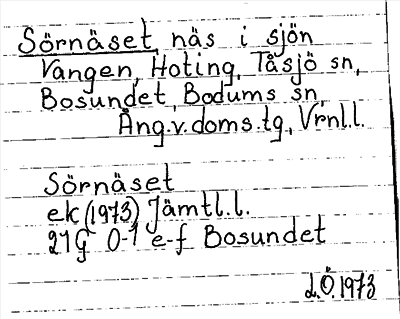 Sörnäset, näs i sjön
Vangen, Hoting, Tåsjö sn,
Bosundet, Bodums sn,
Ång.v.doms.tg., Vrnl.l.
Sörnäset
ek (1973) Jämtl.l.
21G 0-1 e-f Bosundet
L.Ö. 1973